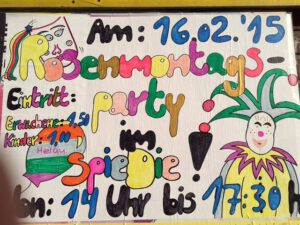 Am: 16.02.'15
Rosenmontags-
party
Eintritt:
Erwachsene: 1,50
Kinder: 1,00
Helau
im
SpieDie!
von: 14 Uhr bis 17:30